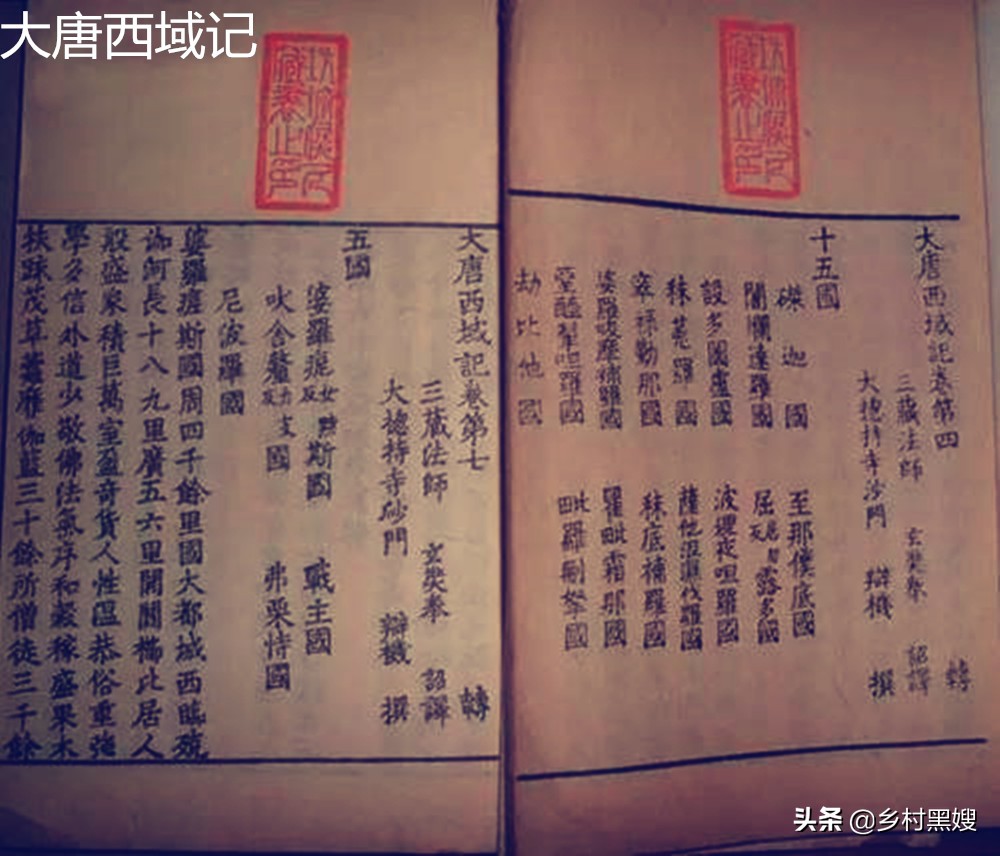 大唐西域记
大唐西域記卷第四
轉
三藏法師 玄奘奉 詔譯
大摠持寺沙門 辯機 撰
十五國
磔迦國 至那僕底國
闍爛達羅國 屈居勿反露多國
設多圖盧國 波理夜呾羅國
秣菟羅國 薩他泥濕伐羅國
窣祿勤那國 秣底補羅國
婆羅吸摩補羅國 瞿毗霜那國
堊醯掣呾羅國 毗羅刪拏國
劫比他國
大唐西域記卷第七
轉
三藏法師 玄奘奉 詔譯
大摠持寺沙門 辯機 撰
五國
婆羅痆女黠反斯國 戰主國
吠舍釐力反國 弗栗恃國
尼波羅國
婆羅痆斯國周四千餘里國大都城西臨殑
伽河長十八九里廣五六里閭閻櫛比居人
殷盛家積巨萬室盈奇貨人性區恭俗重強
學多信外道少敬佛法氣序和穀稼盛果木
扶踈茂草靃靡伽藍三十餘所僧徒三千餘
头条 @乡村黑嫂